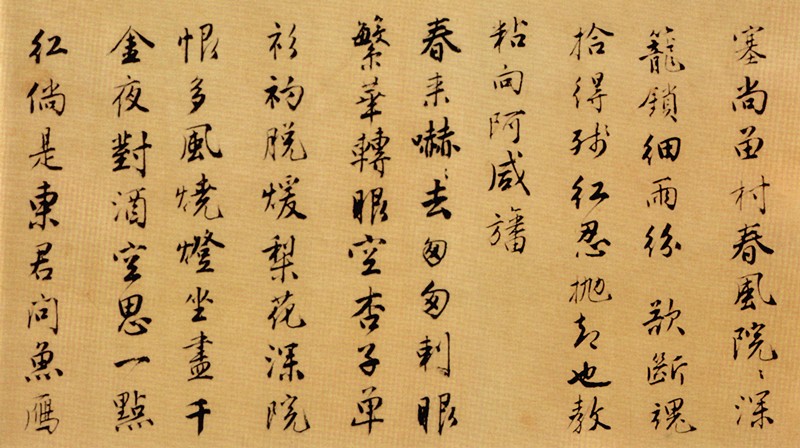 塞尚留村春風院〻深
籠鎖細雨紛 歌斷魂
拾得殘紅忍拋却也教
粘向阿咸旛
春来嚇〻去匆匆刺眼
繁華轉眼空杏子單
衫初脱煖梨花深院
恨多風燒燈坐盡千
金夜對酒空思一點
红倘是東君问魚雁